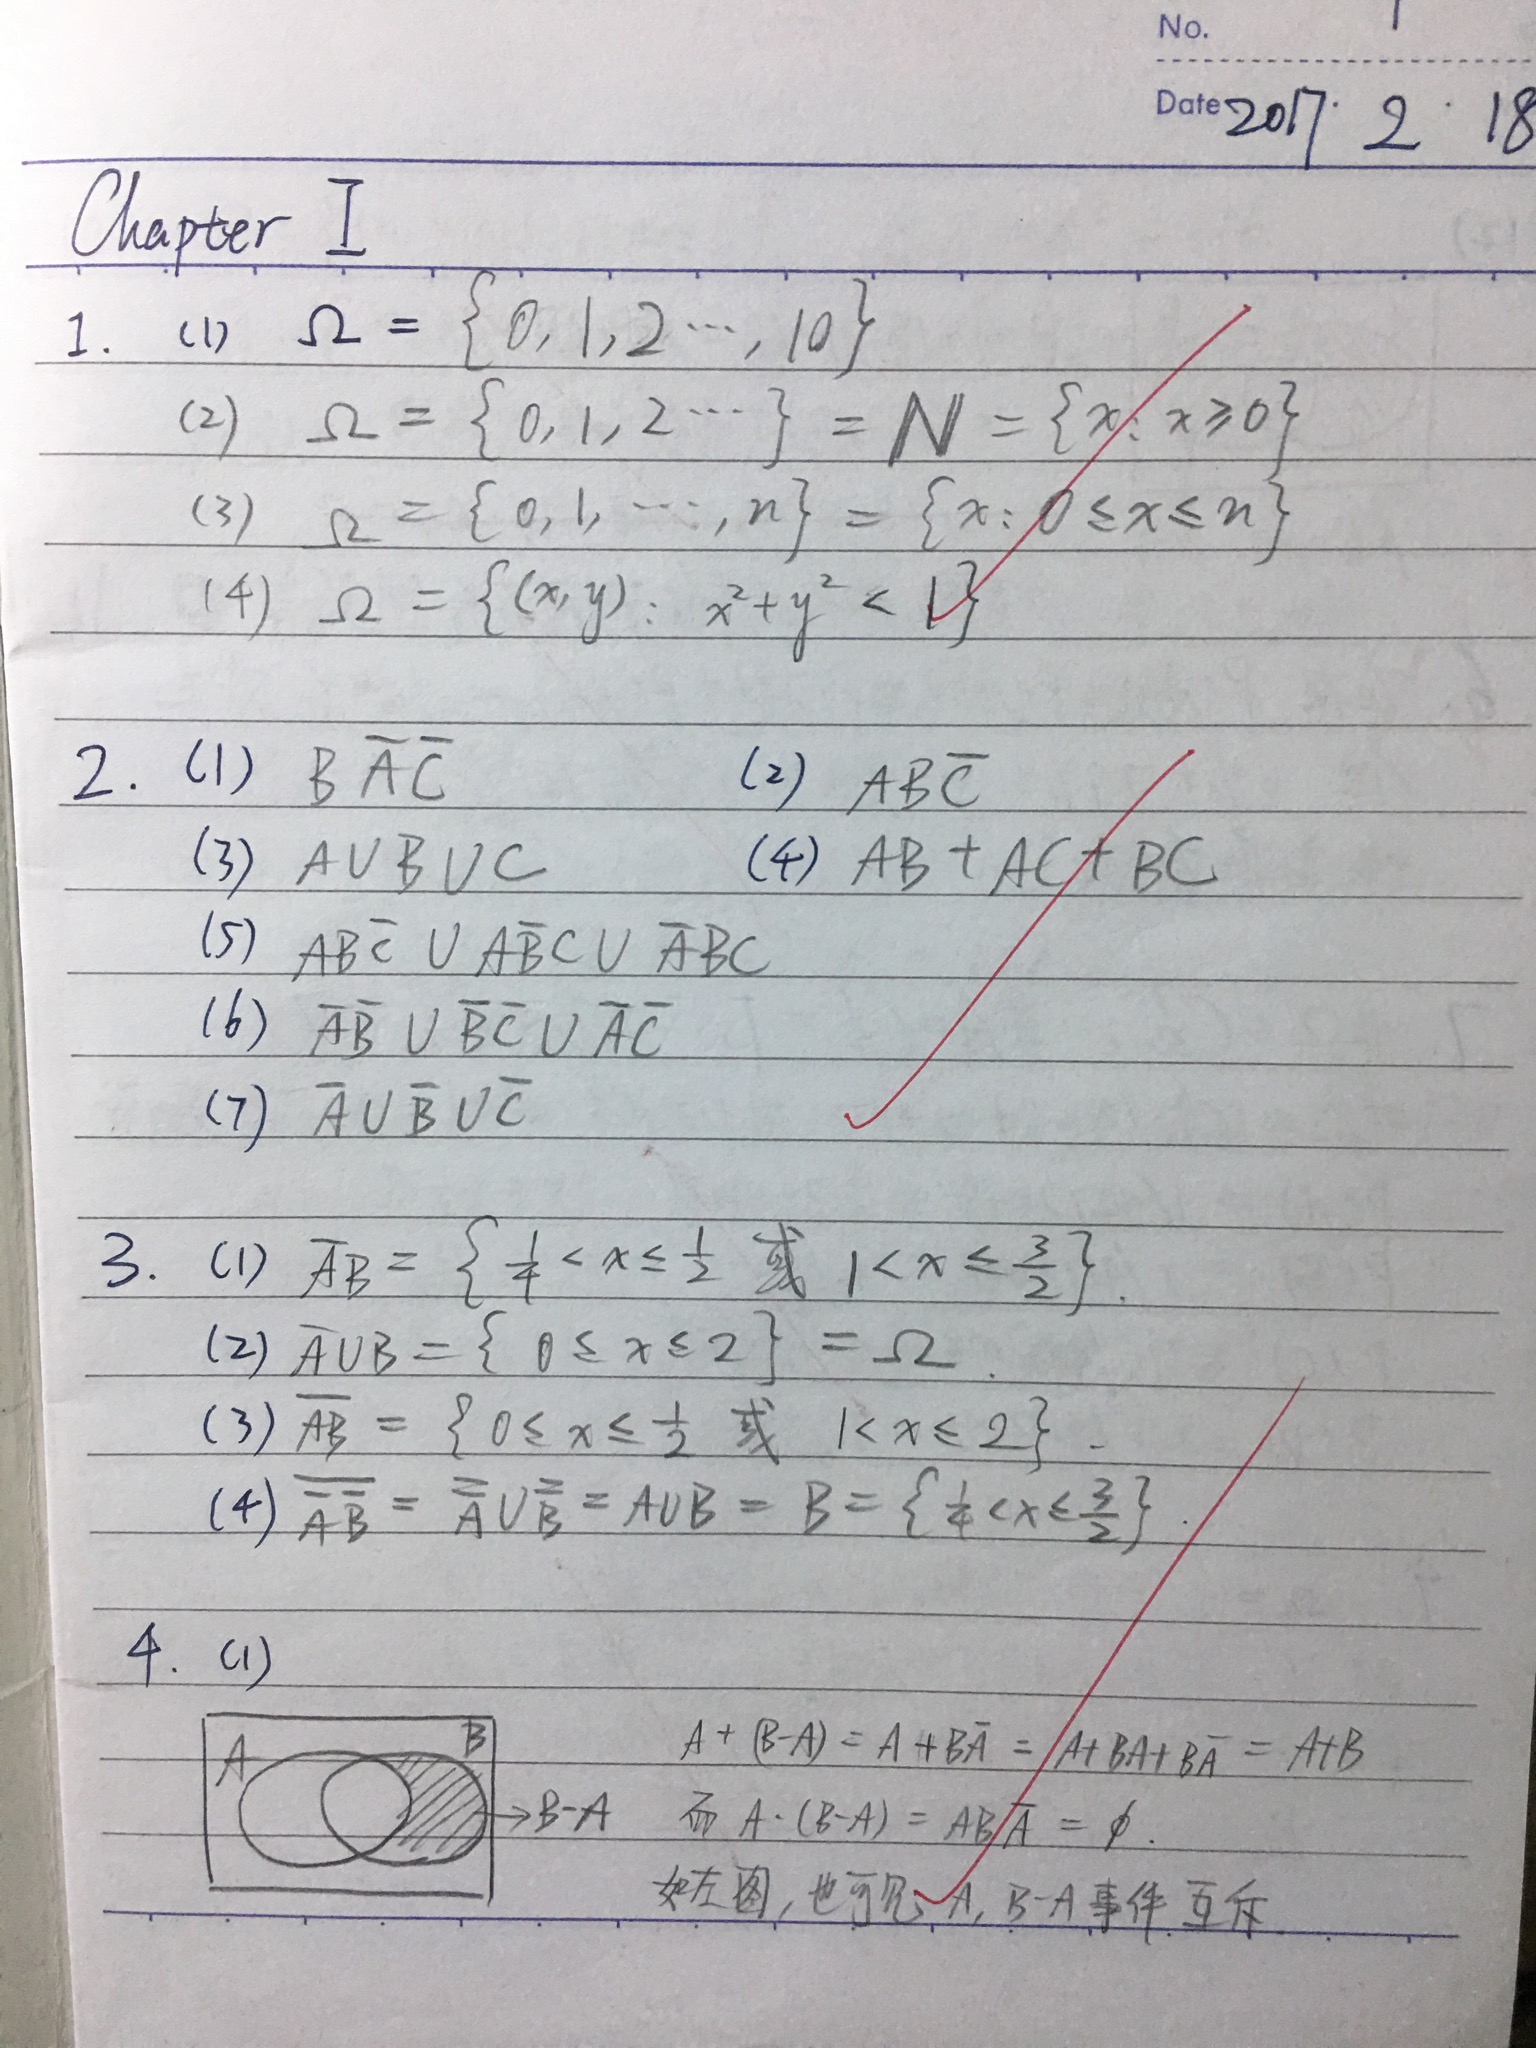 No. 1
Date 2017. 2. 18
Chapter I
1. (1) Ω = {0, 1, 2 ⋯, 10}
(2) Ω = {0, 1, 2 ⋯ } = ℕ = {x: x ⩾ 0}
(3) Ω = {0, 1, ⋯, n} = {x: 0 ≤ x ≤ n}
(4) Ω = {(x, y): x² + y² < 1}
2. (1) B A̅ C̅ (2) A B C̅
(3) A ∪ B ∪ C (4) AB + AC + BC
(5) ABC̅ ∪ AB̅C ∪ A̅BC
(6) A̅B̅ ∪ B̅C̅ ∪ A̅C̅
(7) A̅ ∪ B̅ ∪ C̅
3. (1) A̅B = { 1/4 < x ≤ 1/2 或 1 < x ≤ 3/2 }.
(2) A̅∪B = { 0 ≤ x ≤ 2 } = Ω.
(3) \overline{AB} = { 0 ≤ x ≤ 1/2 或 1 < x ≤ 2 }.
(4) \overline{A̅ B̅} = \overline{A̅} ∪ \overline{B̅} = A∪B = B = { 1/4 < x ≤ 3/2 }.
4. (1)
A B
→ B-A
A + (B-A) = A + BA̅ = A + BA + BA̅ = A+B
而 A · (B-A) = ABA̅ = ϕ.
如左图, 也可见 A, B-A 事件 互斥